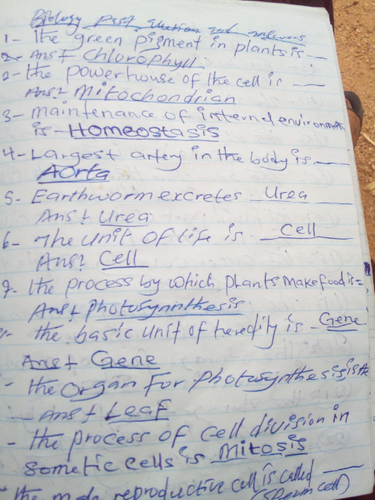 Biology past question and answers
1- the green pigment in plants is __
2- Ans + chlorophyll.
2- the power house of the cell is __
Ans + Mitochondrian
3- maintenance of internal environment
is - Homeostasis
4- Largest artery in the body is __
Aorta
5- Earthworm excretes Urea
Ans + Urea
6- The Unit of life is cell
Ans? Cell
7- the process by which plants make food is =
Ans + photosynnthesis
the basic unit of heredity is - Gene
Ans + Gene
- the Organ For photosynthesis is the
- Ans + Leaf
- the process of cell division in
Sometic cells is Mitosis
the male reproductive cell is called __
(sperm cell)